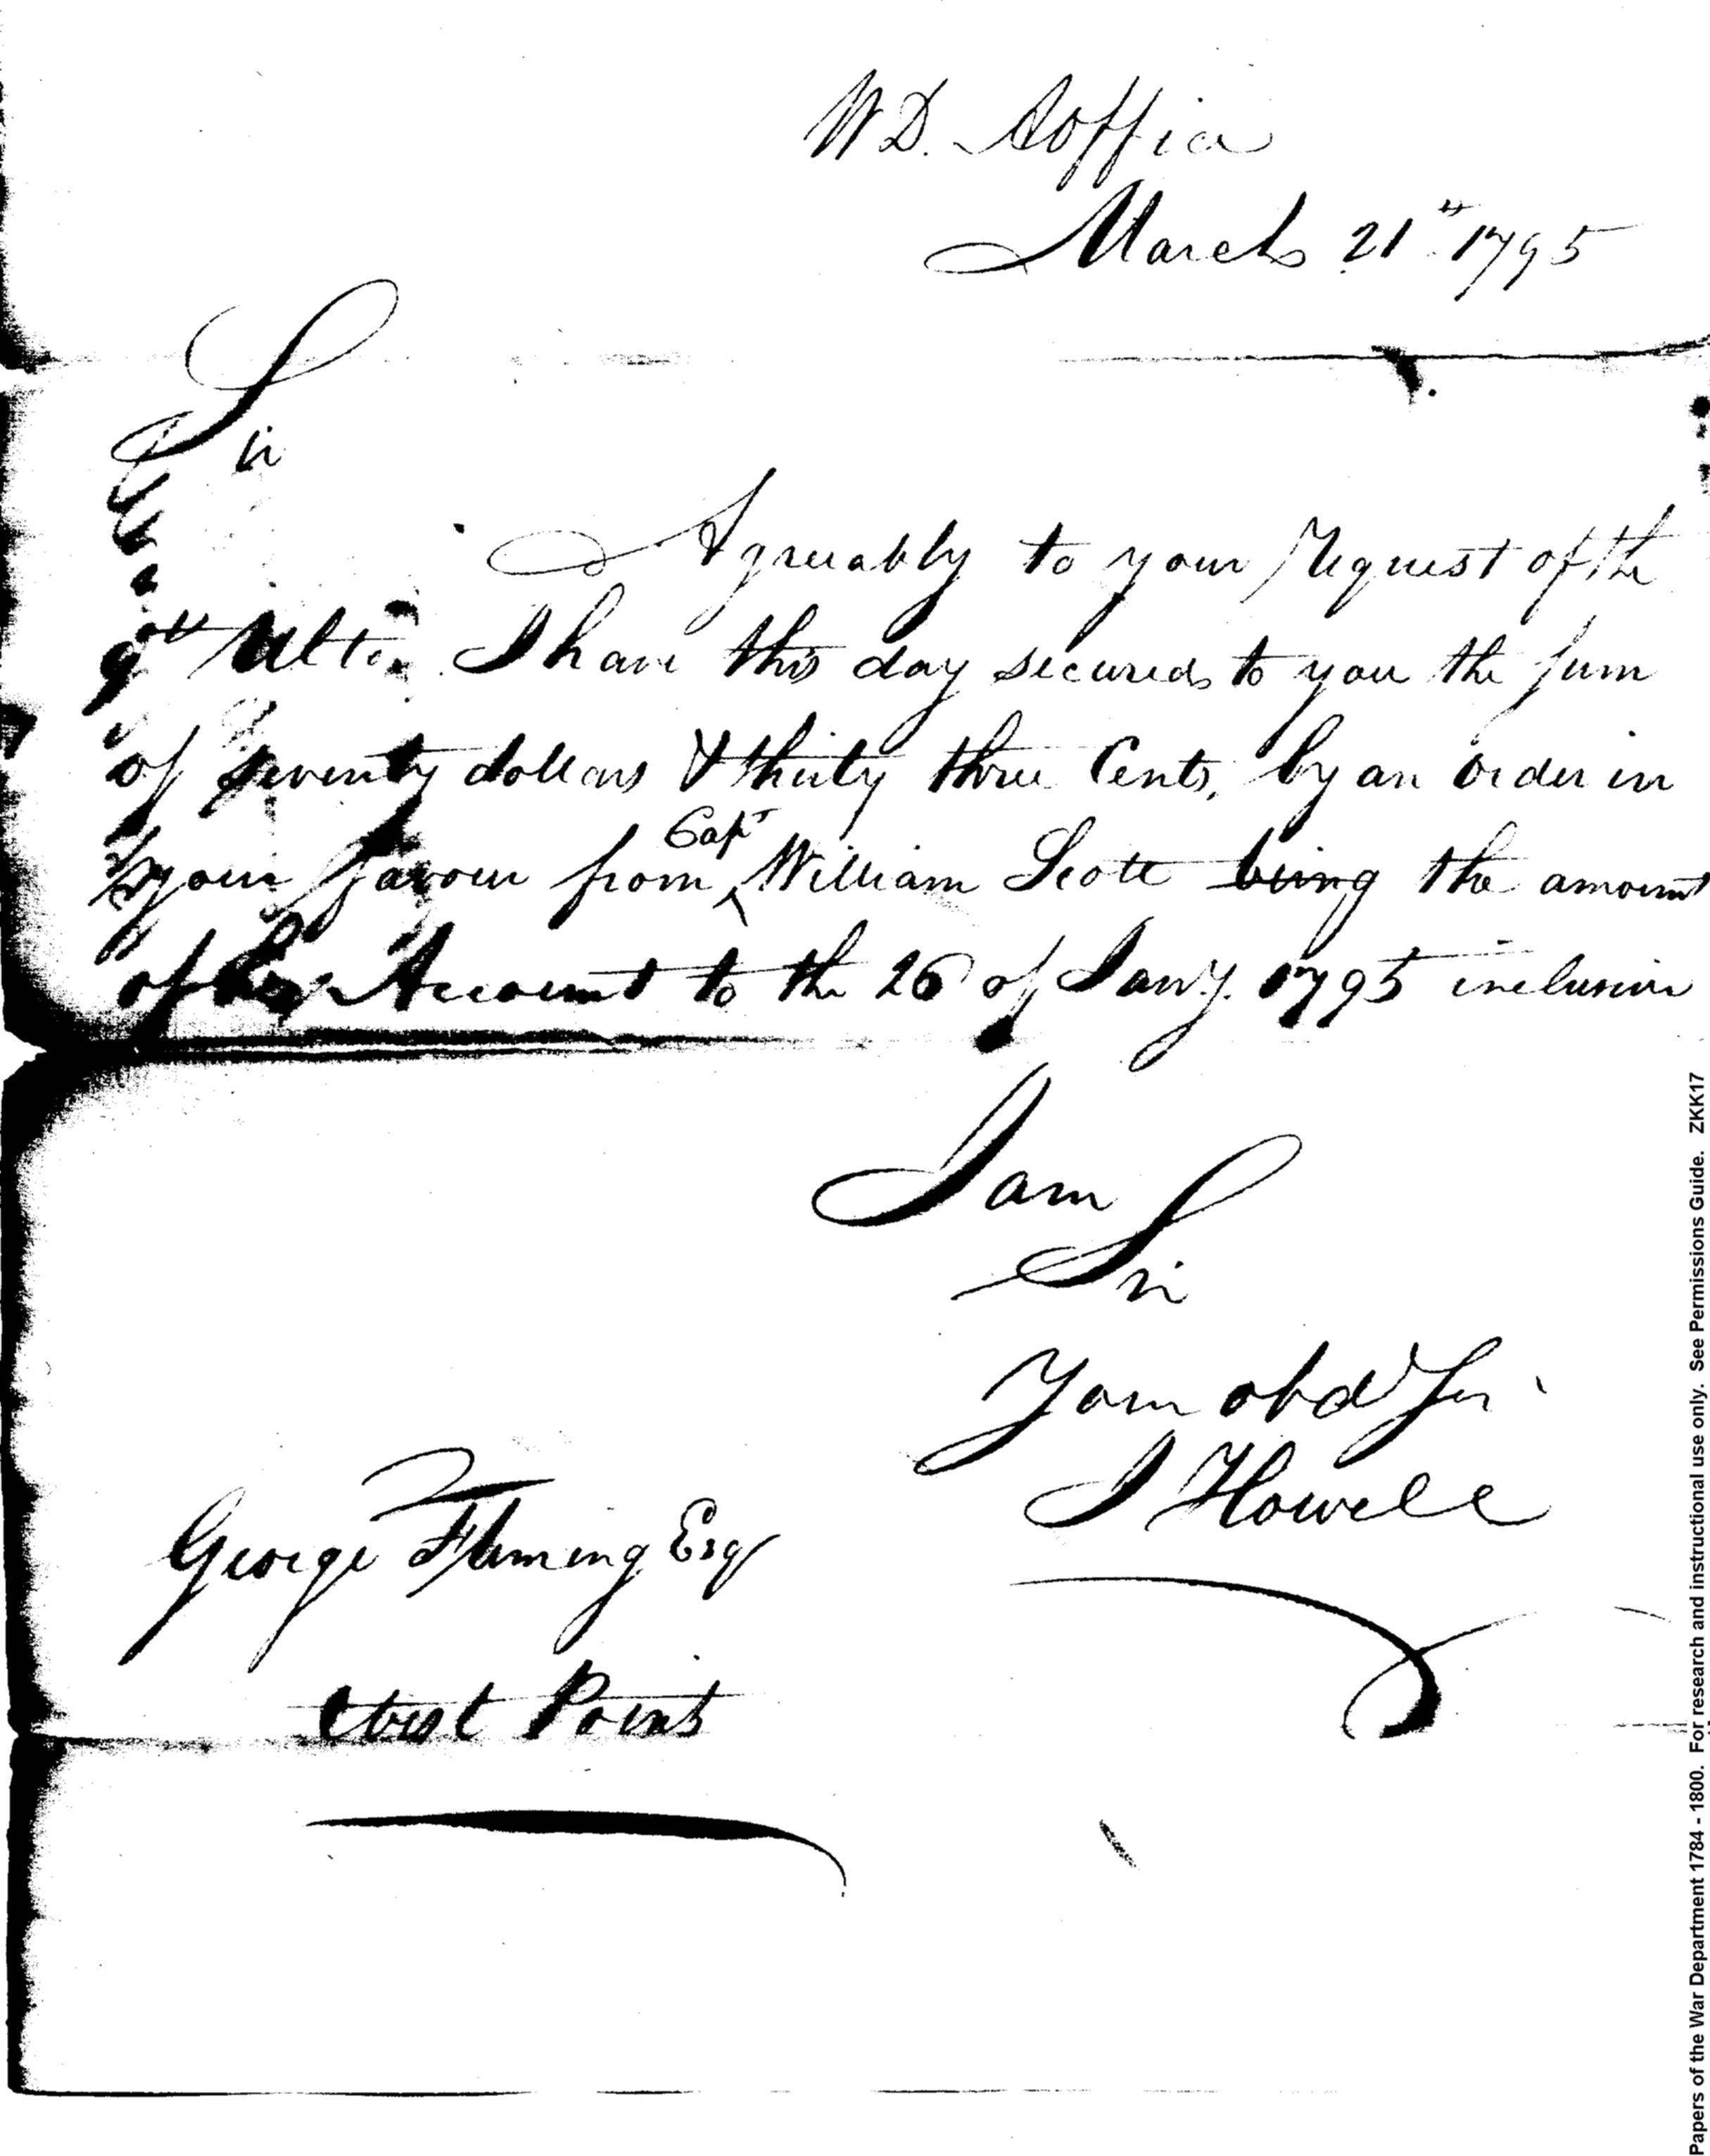 W D. Aoffice
March 21st 1795
Sir
Agreeably to your Request of the
9th Ulto. I have this day secured to you the sum
of seventy dollars & thirty three Cents, by an order in
your favour from Capt William Scott being the amount
of his Account to the 26 of Jany. 1795 inclusive
I am
Sir
Your obd Ser
J Howell
George Fleming Esq
West Point
Papers of the War Department 1784 - 1800. For research and instructional use only. See Permissions Guide. ZKK17